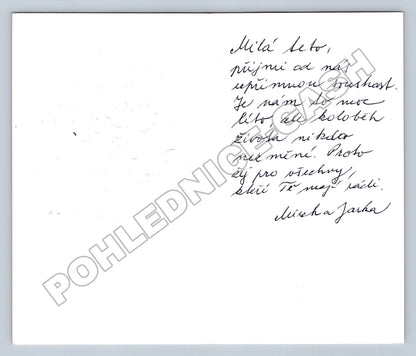 Milá Leto,
přijmi od nás
upřímnou soustrast.
Je nám to moc
líto, ale koloběh
života nikdo
nezmění. Proto
žij pro všechny,
kteří Tě mají rádi.
Mirek a Jarka
POHLEDNICE-CASH